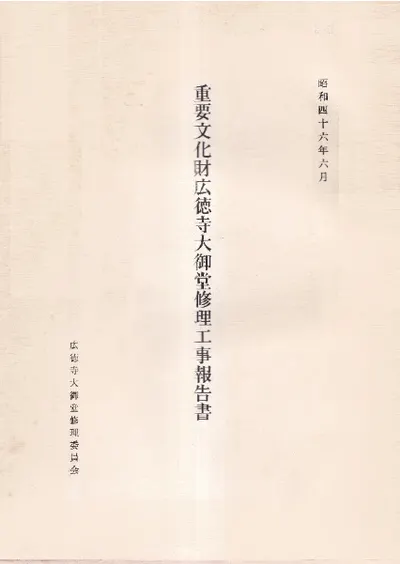 昭和四十六年六月
重要文化財広徳寺大御堂修理工事報告書
広徳寺大御堂修理委員会